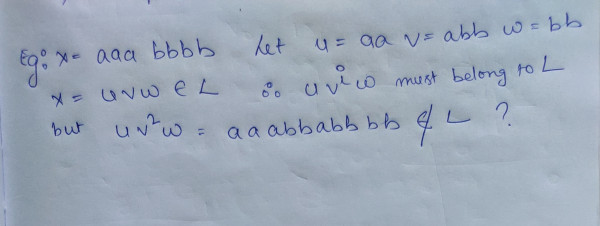 Eg: x = aaa bbbb Let u = aa v = abb w = bb
x = uvw ∈ L ∴ uvⁱw must belong to L
but uv²w = aaabbabbbb ∉ L ?